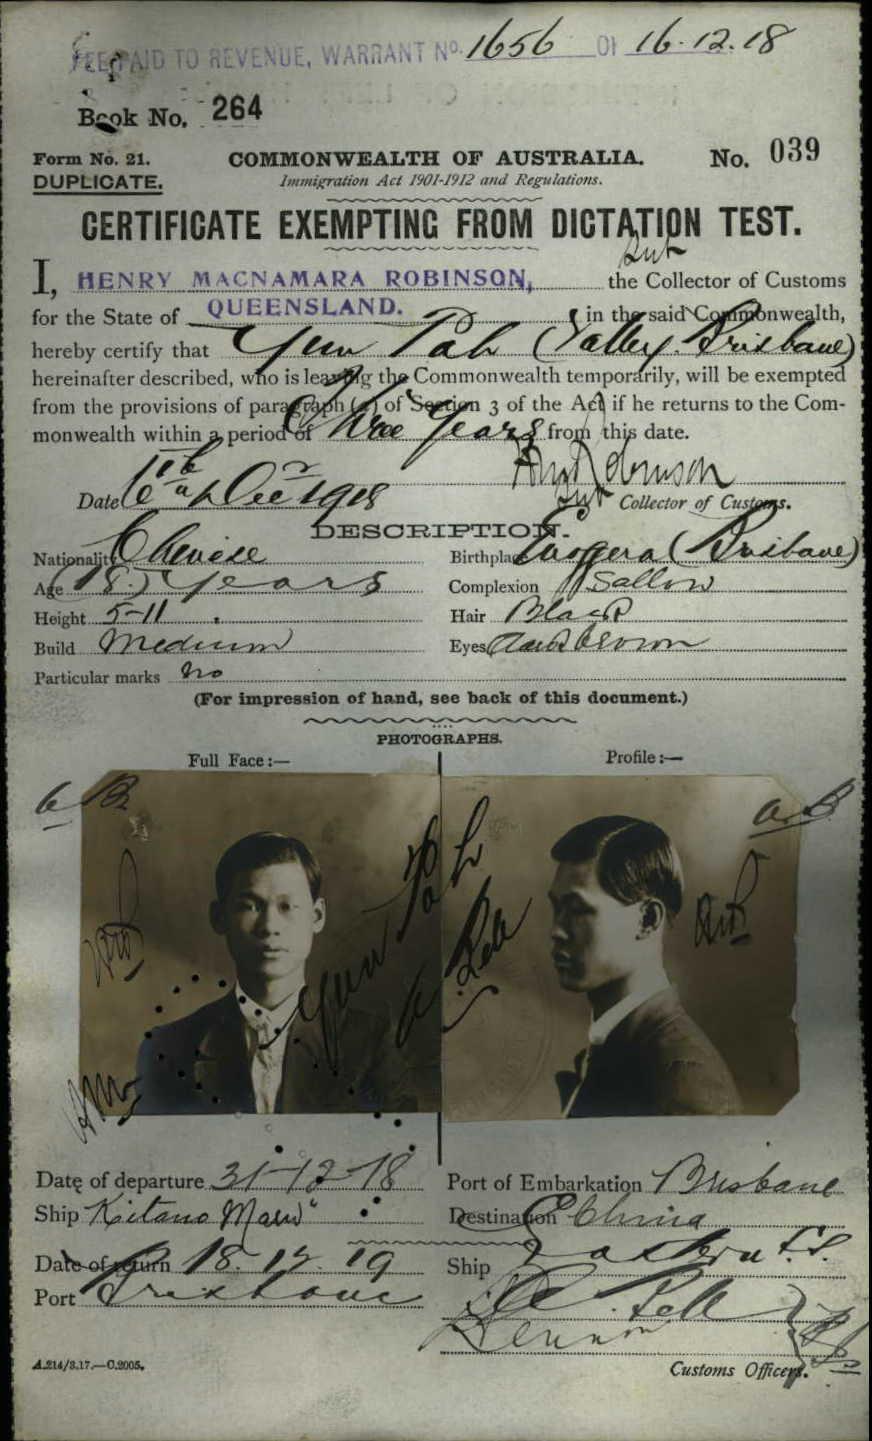 FEE PAID TO REVENUE, WARRANT No. 1656 OF 16.12.18
Book No. 264
Form No. 21. COMMONWEALTH OF AUSTRALIA. No. 039
DUPLICATE. Immigration Act 1901-1912 and Regulations.
CERTIFICATE EXEMPTING FROM DICTATION TEST.
I, HENRY MACNAMARA ROBINSON, the Collector of Customs
for the State of QUEENSLAND. in the said Commonwealth,
hereby certify that Yun Pah (Valley. Brisbane)
hereinafter described, who is leaving the Commonwealth temporarily, will be exempted
from the provisions of paragraph (a) of Section 3 of the Act if he returns to the Com-
monwealth within a period of Three Years from this date.
Date Dec 1918 Collector of Customs.
DESCRIPTION.
Nationality Chinese Birthplace (Brisbane)
Age (18.) years Complexion Sallow
Height 5-11 Hair Black
Build Medium Eyes Dark brown
Particular marks no
(For impression of hand, see back of this document.)
PHOTOGRAPHS.
Full Face:— Profile:—
Yun Pah
Date of departure 31-12-18 Port of Embarkation Brisbane
Ship Kitano Maru" Destination China
Date of return 18.12.19 Ship Eastern
Port Brisbane
A.214/3.17.—C.2005. Customs Officers.